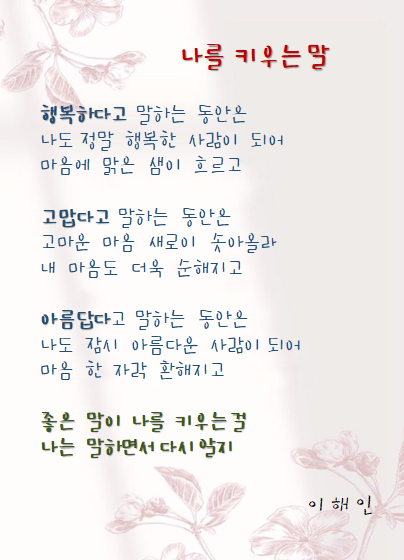 나를 키우는 말
행복하다고 말하는 동안은
나도 정말 행복한 사람이 되어
마음에 맑은 샘이 흐르고
고맙다고 말하는 동안은
고마운 마음 새로이 솟아올라
내 마음도 더욱 순해지고
아름답다고 말하는 동안은
나도 잠시 아름다운 사람이 되어
마음 한 자락 환해지고
좋은 말이 나를 키우는 걸
나는 말하면서 다시 알지
이 해 인